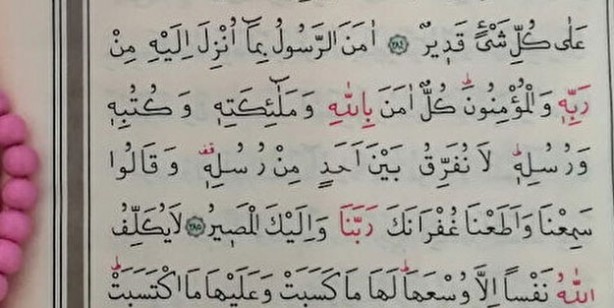 عَلٰى كُلِّ شَىْءٍ قَد۪يرٌ ﴿٢٨٤﴾ اٰمَنَ الرَّسُولُ بِمَٓا اُنْزِلَ اِلَيْهِ مِنْ
رَبِّه۪ وَالْمُؤْمِنُونَۜ كُلٌّ اٰمَنَ بِاللّٰهِ وَمَلٰٓئِكَتِه۪ وَكُتُبِه۪
وَرُسُلِه۪ۜ لَا نُفَرِّقُ بَيْنَ اَحَدٍ مِنْ رُسُلِه۪ۚ وَقَالُوا
سَمِعْنَا وَاَطَعْنَا غُفْرَانَكَ رَبَّنَا وَاِلَيْكَ الْمَص۪يرُ ﴿٢٨٥﴾ لَا يُكَلِّفُ
اللّٰهُ نَفْساً اِلَّا وُسْعَهَاۜ لَهَا مَا كَسَبَتْ وَعَلَيْهَا مَا اكْتَسَبَتْۜ